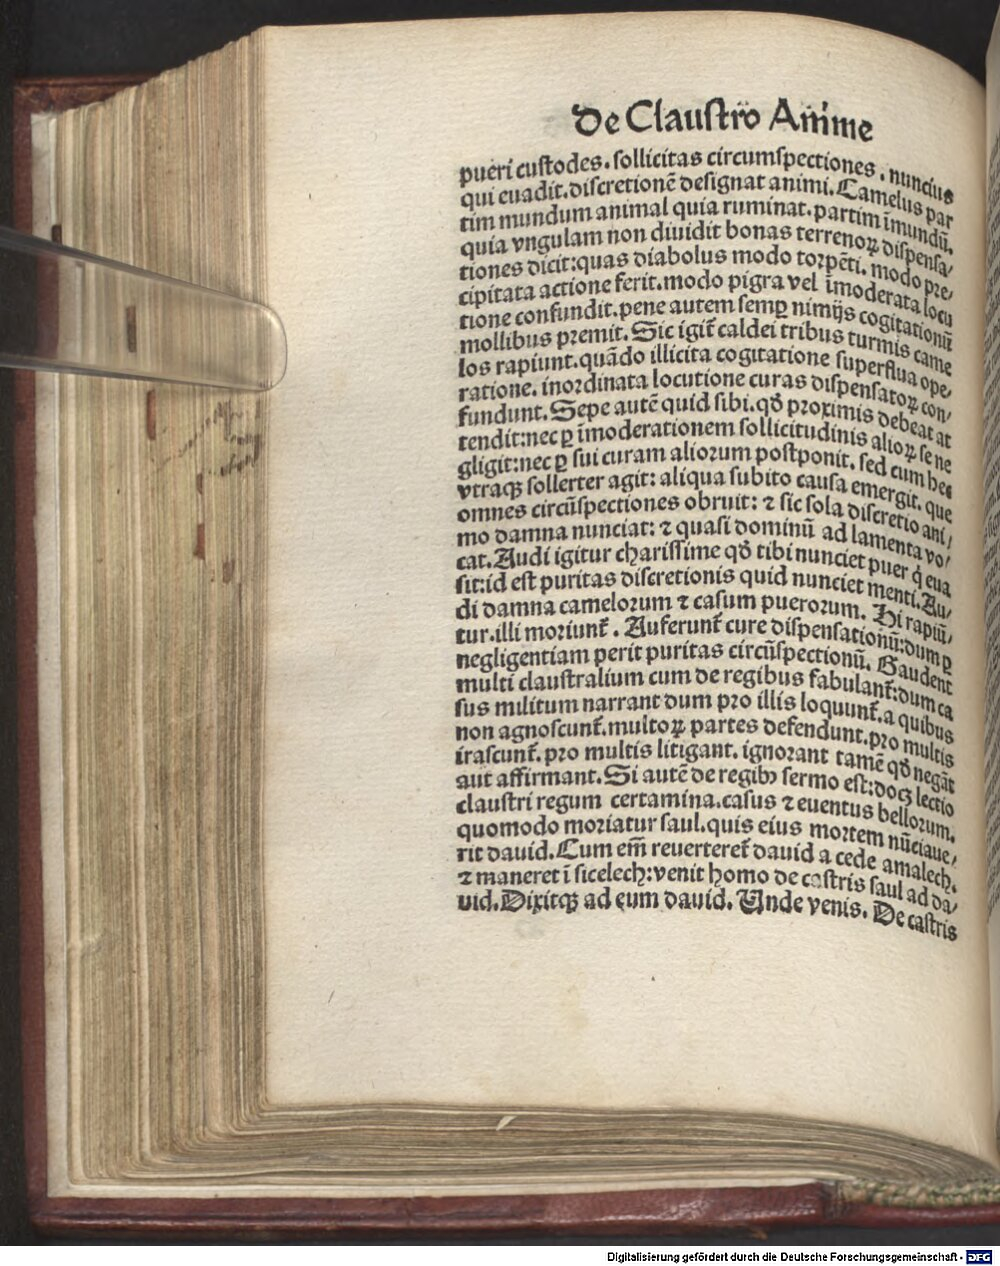 De Claustro Anime
pueri custodes. sollicitas circumspectiones. nuncius
qui euadit. discretionē designat animi. Camelus par
tim mundum animal quia ruminat. partim īmundū.
quia vngulam non diuidit bonas terrenoꝝ dispensa/
tiones dicit: quas diabolus modo torpēti. modo pre/
cipitata actione ferit. modo pigra vel īmoderata locu
tione confundit. pene autem semꝑ nimijs cogitationū
mollibus premit. Sic igit̄ caldei tribus turmis came
los rapiunt. quādo illicita cogitatione superflua ope/
ratione. inordinata locutione curas dispensatoꝝ con/
fundunt. Sepe autē quid sibi. qđ proximis debeat at
tendit: nec ꝑ īmoderationem sollicitudinis alioꝝ se ne
gligit: nec ꝑ sui curam aliorum postponit. sed cum hec
vtraqꝫ sollerter agit: aliqua subito causa emergit. que
omnes circūspectiones obruit: ⁊ sic sola discretio ani/
mo damna nunciat: ⁊ quasi dominū ad lamenta vo/
cat. Audi igitur charissime qđ tibi nunciet puer q̇ eua
sit: id est puritas discretionis quid nunciet menti. Au/
di damna camelorum ⁊ casum puerorum. Hi rapiū/
tur. illi moriunt̄. Auferunt̄ cure dispensationū: dum ꝑ
negligentiam perit puritas circūspectionū. Gaudent
multi claustralium cum de regibus fabulant̄: dum ca
sus militum narrant dum pro illis loquunt̄. a quibus
non agnoscunt̄. multoꝝ partes defendunt. pro multis
irascunt̄. pro multis litigant. ignorant tamē qđ negāt
aut affirmant. Si autē de regibꝫ sermo est: docꝫ lectio
claustri regum certamina. casus ⁊ euentus bellorum.
quomodo moriatur saul. quis eius mortem nūciaue/
rit dauid. Cum em̄ reuerteret̄ dauid a cede amalech.
⁊ maneret ī sicelech: venit homo de castris saul ad da/
uid. Dixitqꝫ ad eum dauid. Unde venis. De castris
Digitalisierung gefördert durch die Deutsche Forschungsgemeinschaft - DFG